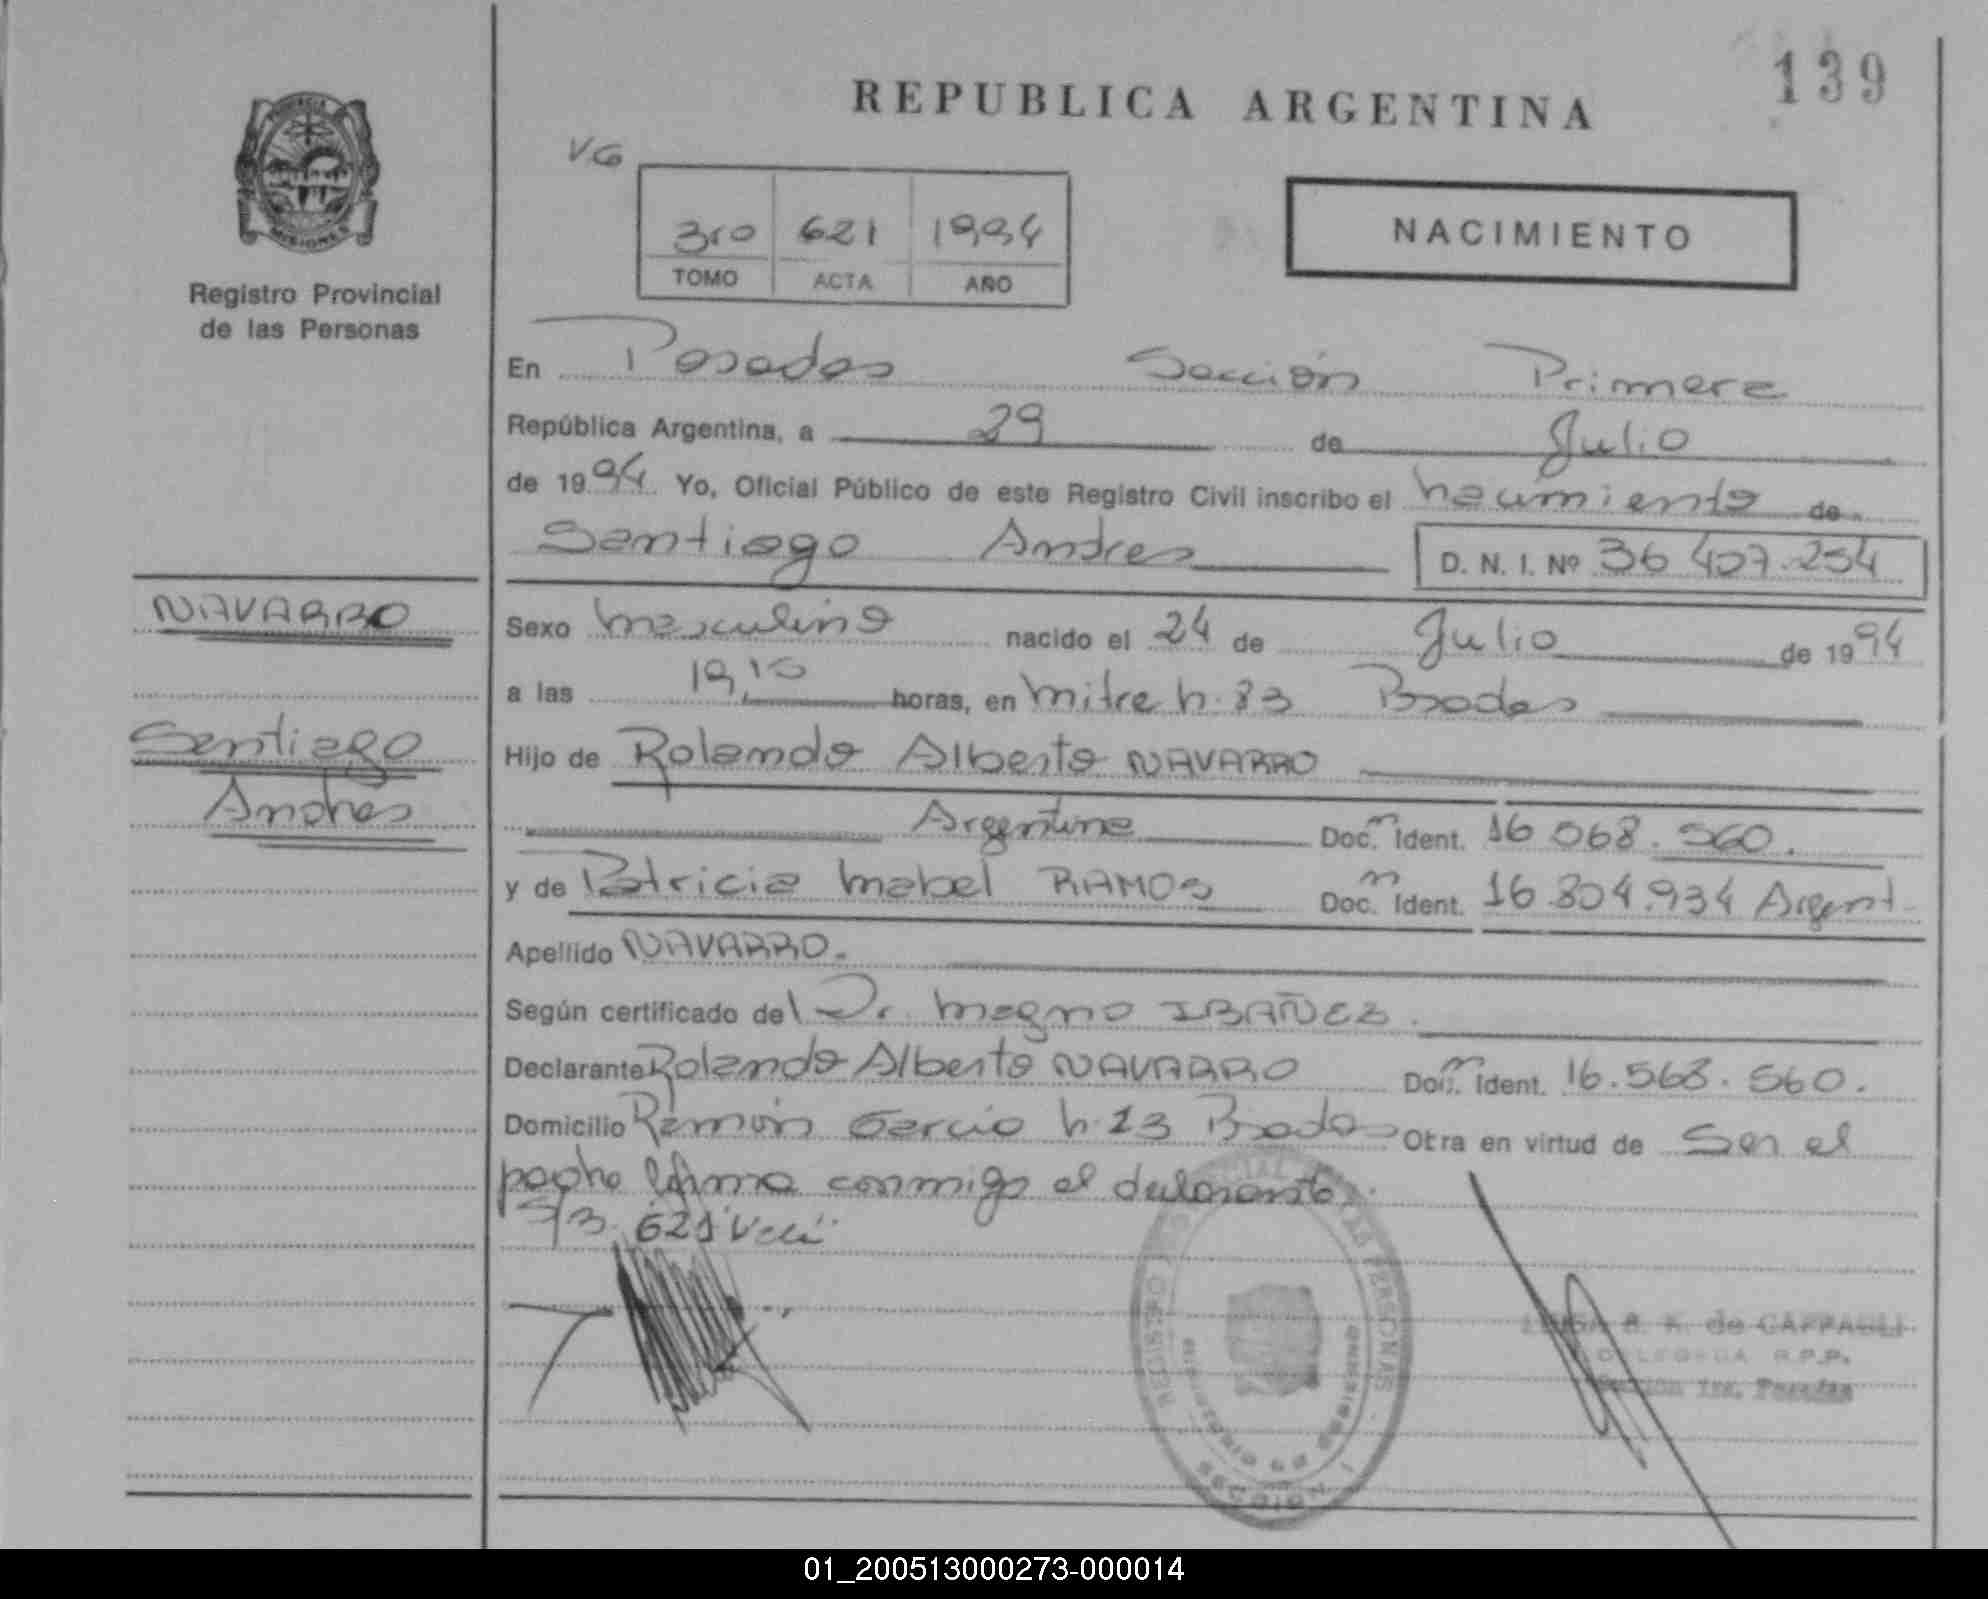 139
REPUBLICA ARGENTINA
VG
3ro 621 1994
TOMO ACTA AÑO
NACIMIENTO
MISIONES
Registro Provincial
de las Personas
En Posadas Sección Primera
República Argentina, a 29 de Julio
de 1994 Yo, Oficial Público de este Registro Civil inscribo el nacimiento de
Santiago Andres D. N. I. Nº 36 407.254
NAVARRO
Santiago
Andres
Sexo masculino nacido el 24 de Julio de 1994
a las 19,10 horas, en Mitre n. 83 Posadas
Hijo de Rolando Alberto NAVARRO
Argentina Doc. Ident. 16 068. 560.
y de Patricia Mabel RAMOS Doc. Ident. 16.804.934 Argent
Apellido NAVARRO.
Según certificado del Dr. Magno IBAÑEZ.
Declarante Rolando Alberto NAVARRO Doc. Ident. 16.568.560.
Domicilio Ramón Garcia n. 23 Posadas Obra en virtud de Ser el
padre firma conmigo el declarante.
S/B. 621
REGISTRO PROVINCIAL DE LAS PERSONAS
SECCION 1
de CAFFAULI
DELEGADA R.P.P.
Sección 1ra. Posadas
01_200513000273-000014